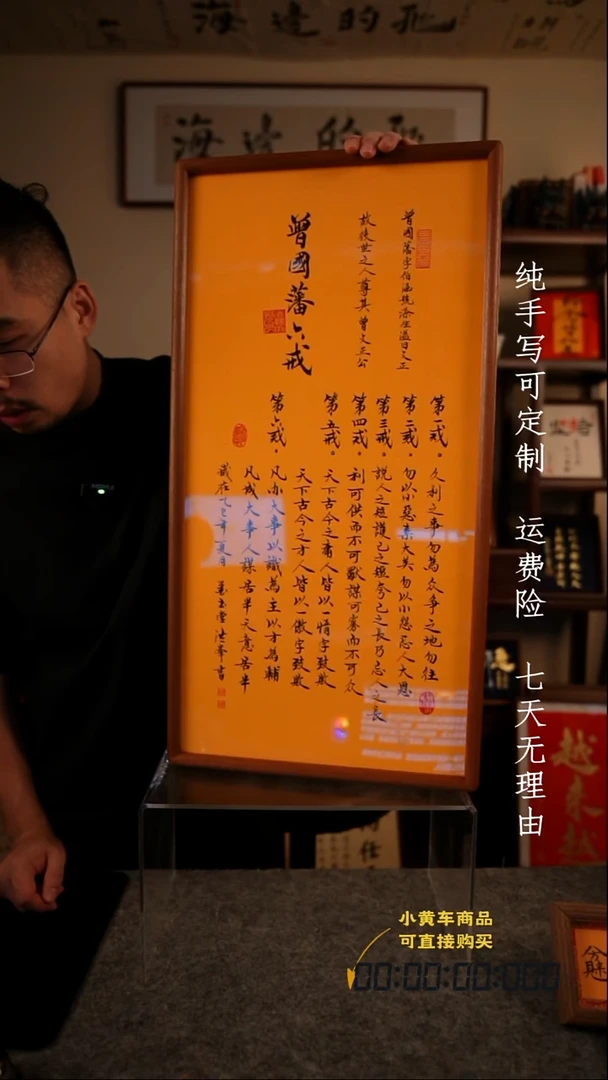 海邊的
海邊的
曾國藩字伯涵號滌生謚曰文正
故後世之人尊其曾文正公
曾國藩六戒
第一戒。久利之事勿為众爭之地勿往
第二戒。勿以小惡棄大美勿以小怨忘人大恩
第三戒。說人之短護己之短夸己之長乃忌人之長
第四戒。利可供而不可獸謀可寡而不可众
第五戒。天下古今之庸人皆以一惰字致敗
天下古今之才人皆以一傲字致敗
第六戒。凡办大事以識為主以才為輔
凡成大事人謀居半天意居半
歲在乙巳年夏月
纯手写可定制 运费险 七天无理由
越来越
小黄车商品
可直接购买
00:00:00:000